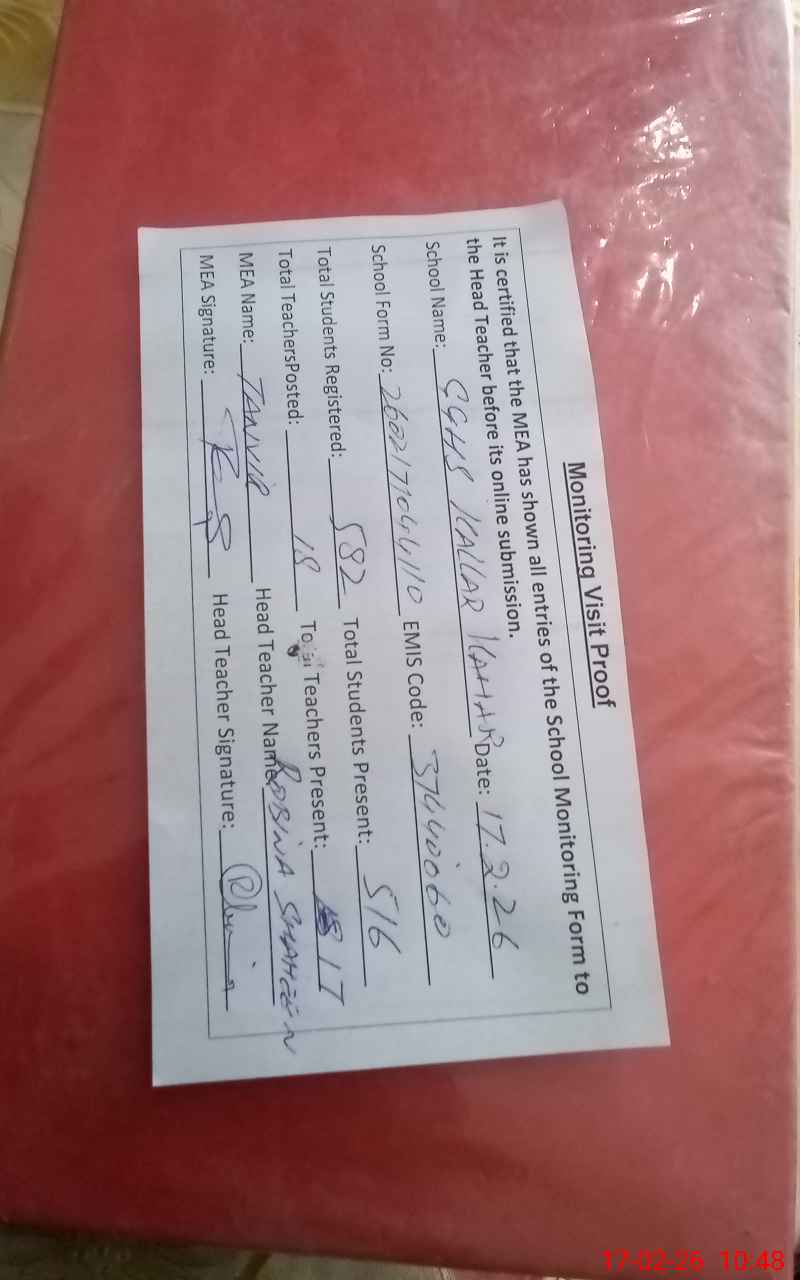 Monitoring Visit Proof
It is certified that the MEA has shown all entries of the School Monitoring Form to
the Head Teacher before its online submission.
School Name: GGHS KALLAR KAHAR Date: 17.2.26
School Form No: 2602171044110 EMIS Code: 37440060
Total Students Registered: 582 Total Students Present: 516
Total TeachersPosted: 18 Total Teachers Present: 17
MEA Name: TANVIR Head Teacher Name: ROBINA SHAHEEN
MEA Signature: Head Teacher Signature:
17-02-26 10:48